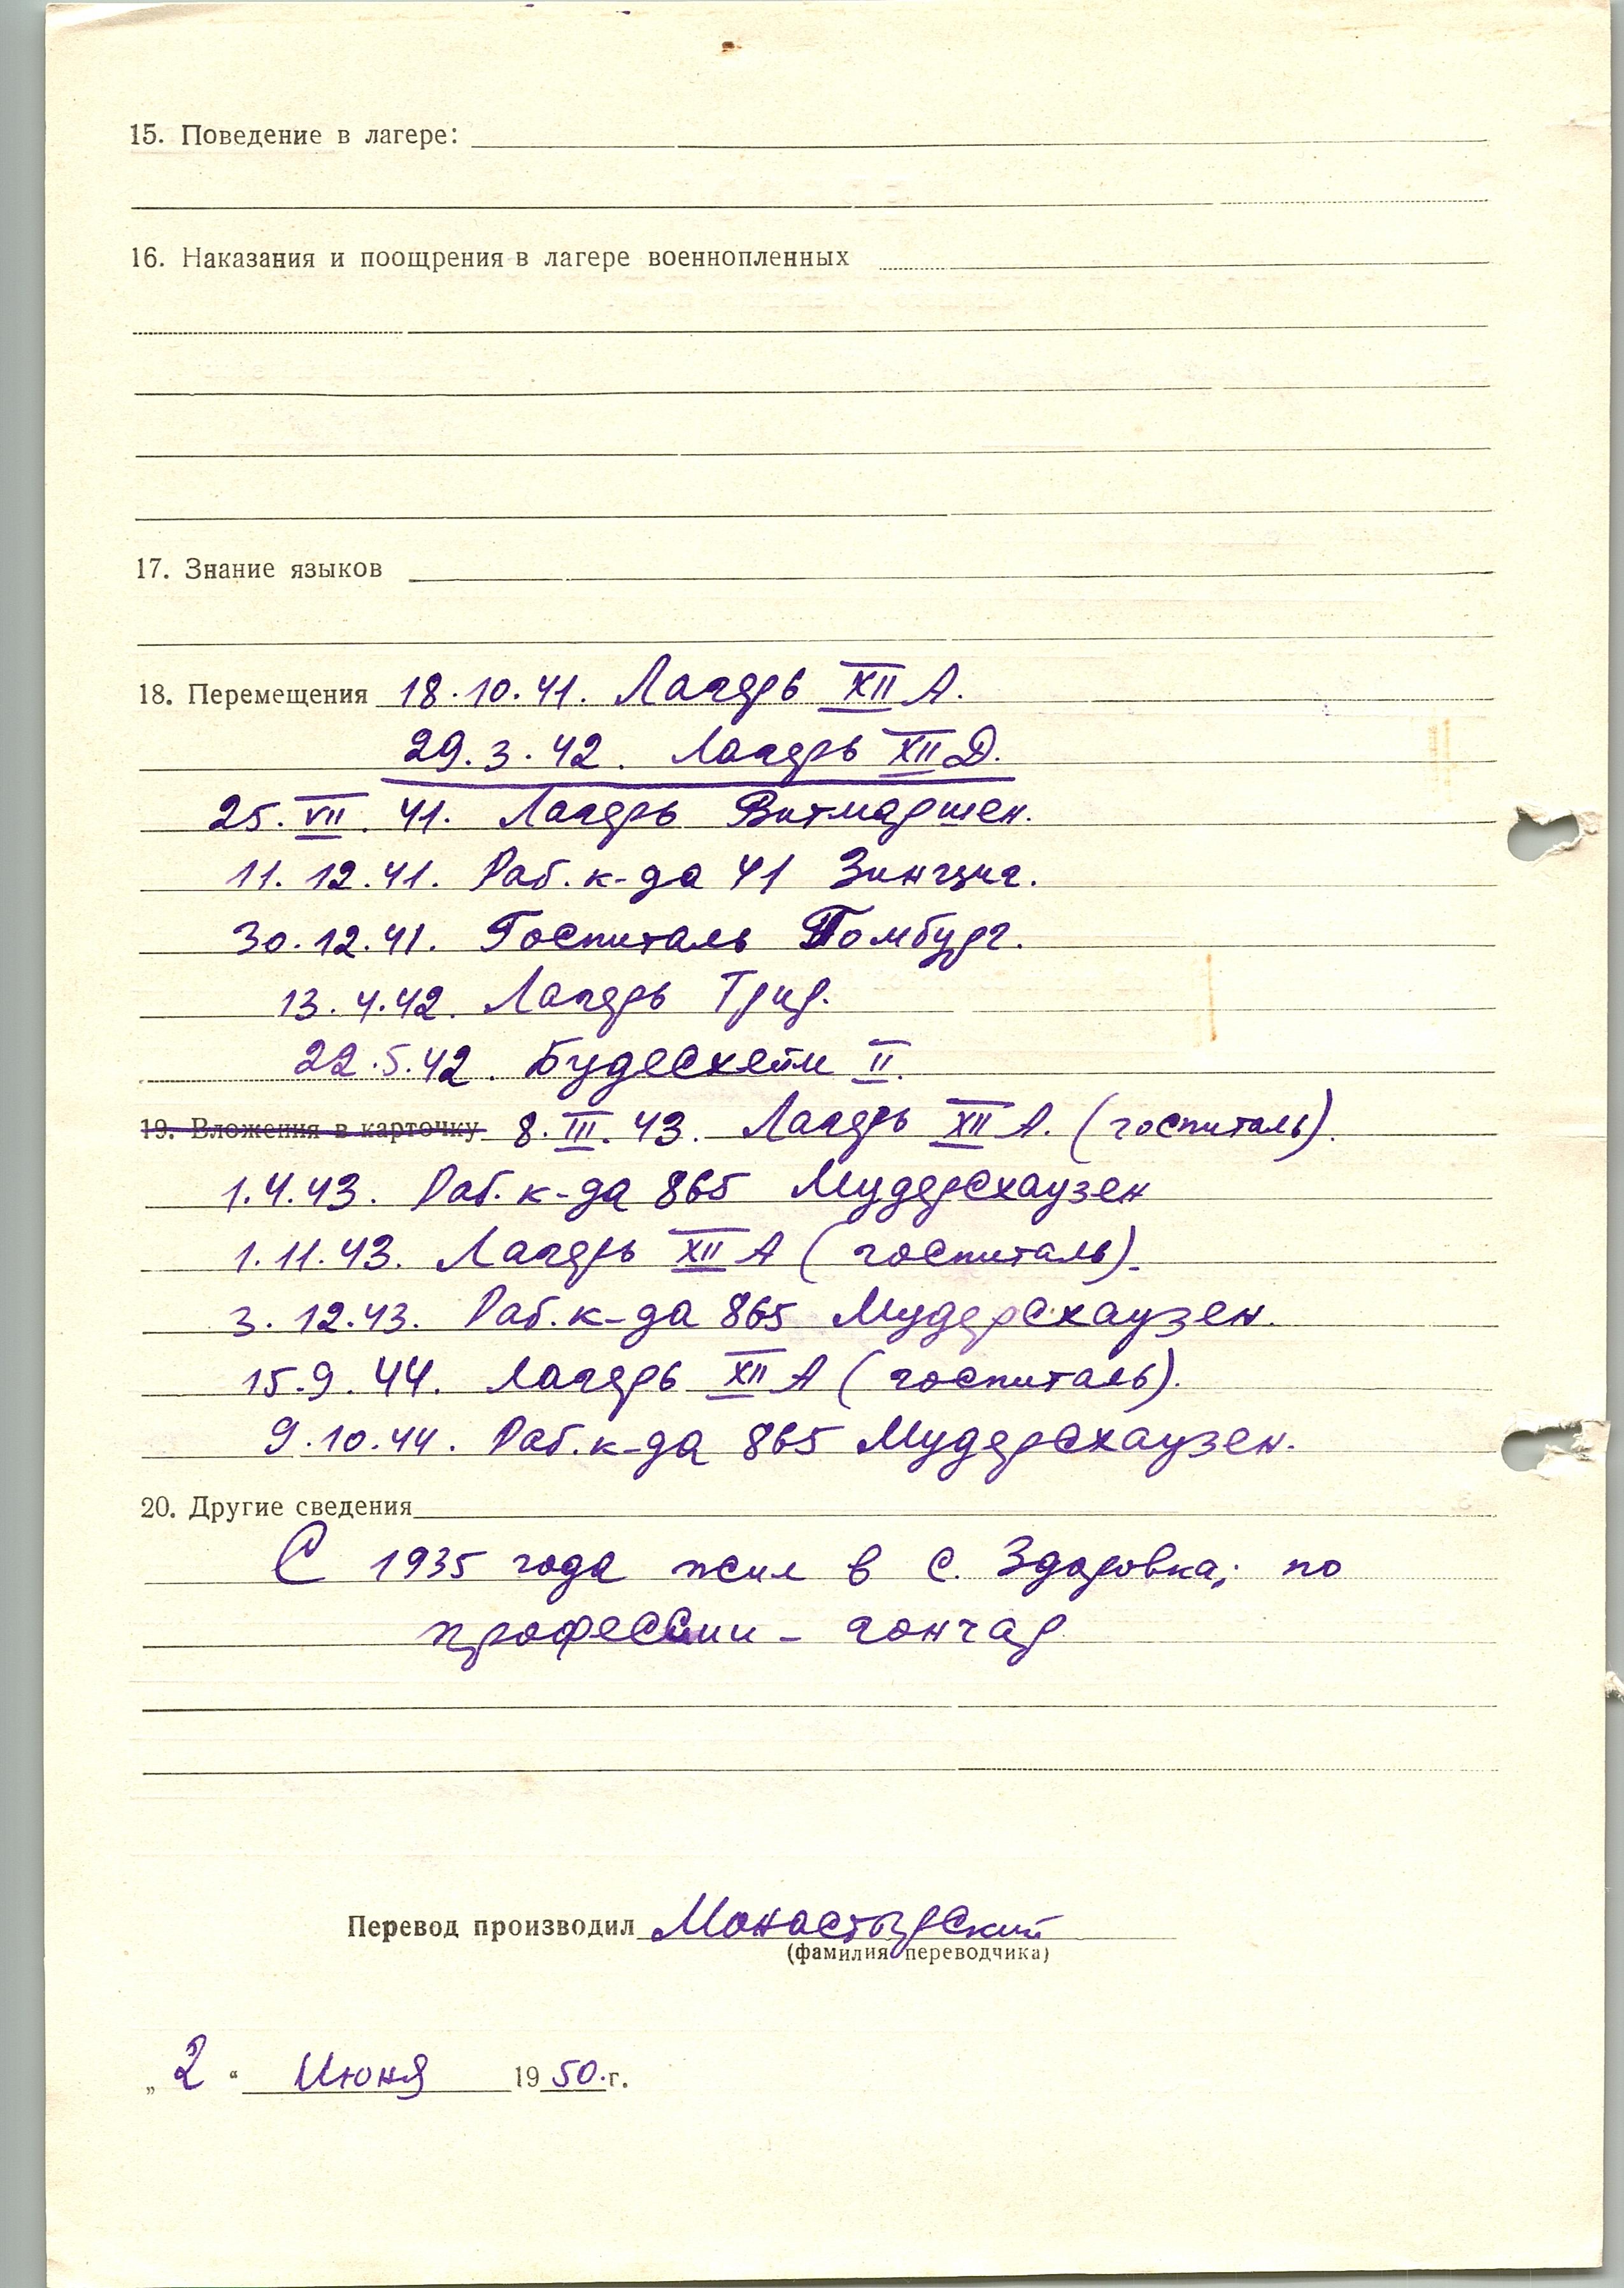 15. Поведение в лагере:
16. Наказания и поощрения в лагере военнопленных
17. Знание языков
18. Перемещения 18.10.41. Лагерь XII А.
29.3.42. Лагерь XII Д.
25.VII.41. Лагерь Витмаршен.
11.12.41. Раб. к-да 41 Зинциг.
30.12.41. Госпиталь Гомбург.
13.4.42. Лагерь Трир.
22.5.42. Будесхейм II.
19. Вложения в карточку 8.III.43. Лагерь XII А. (госпиталь).
1.4.43. Раб. к-да 865 Мудерсхаузен
1.11.43. Лагерь XII А (госпиталь).
3.12.43. Раб. к-да 865 Мудерсхаузен.
15.9.44. Лагерь XII А (госпиталь).
9.10.44. Раб. к-да 865 Мудерсхаузен.
20. Другие сведения
С 1935 года жил в с. Здоровка; по
профессии - гончар
Перевод производил Монастырский
(фамилия переводчика)
„2“ Июня 1950.г.